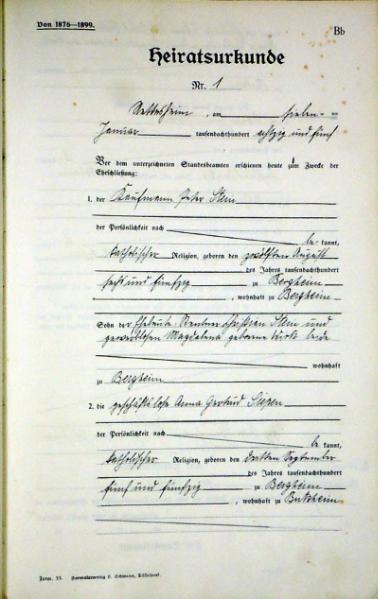 Von 1876—1899.
Bb
Heiratsurkunde
Nr. 1
am sieben-
Januar tausendachthundert achtzig und fünf
Vor dem unterzeichneten Standesbeamten erschienen heute zum Zwecke der
Eheschließung:
1. der Kaufmann Peter
der Persönlichkeit nach
be kannt,
katholischer Religion, geboren den zwölften August
des Jahres tausendachthundert
sechs und fünfzig zu Bergheim
, wohnhaft zu Bergheim
Sohn der Eheleute Rentner Christian und
Magdalena geborene beide
wohnhaft
zu Bergheim
2. die geschäftslose Anna Gertrud
der Persönlichkeit nach
be kannt,
katholischer Religion, geboren den dritten September
des Jahres tausendachthundert
fünf und fünfzig zu Bergheim
, wohnhaft zu Butzheim